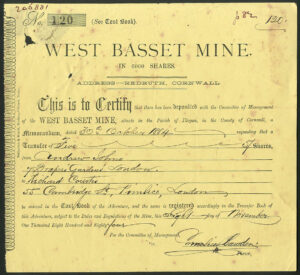 206881
No. 120 (See Cost Book.) £82 120
WEST BASSET MINE.
IN 6000 SHARES.
ADDRESS—REDRUTH, CORNWALL
This is to Certify that there has been deposited with the Committee of Management
of the WEST BASSET MINE, situate in the Parish of Illogan, in the County of Cornwall, a
Memorandum, dated 30th October 1884, requesting that a
Transfer of Five Shares,
from Andrew Johns
Drapers Gardens London
to Richard
55 Cambridge St, Pimlico, London
be entered in the Cost Book of the Adventure, and the same is registered accordingly in the Transfer Book of
this Adventure, subject to the Rules and Regulations of the Mine, this Eighth day of November
One Thousand Eight Hundred and Eighty four
For the Committee of Management,
Purser.